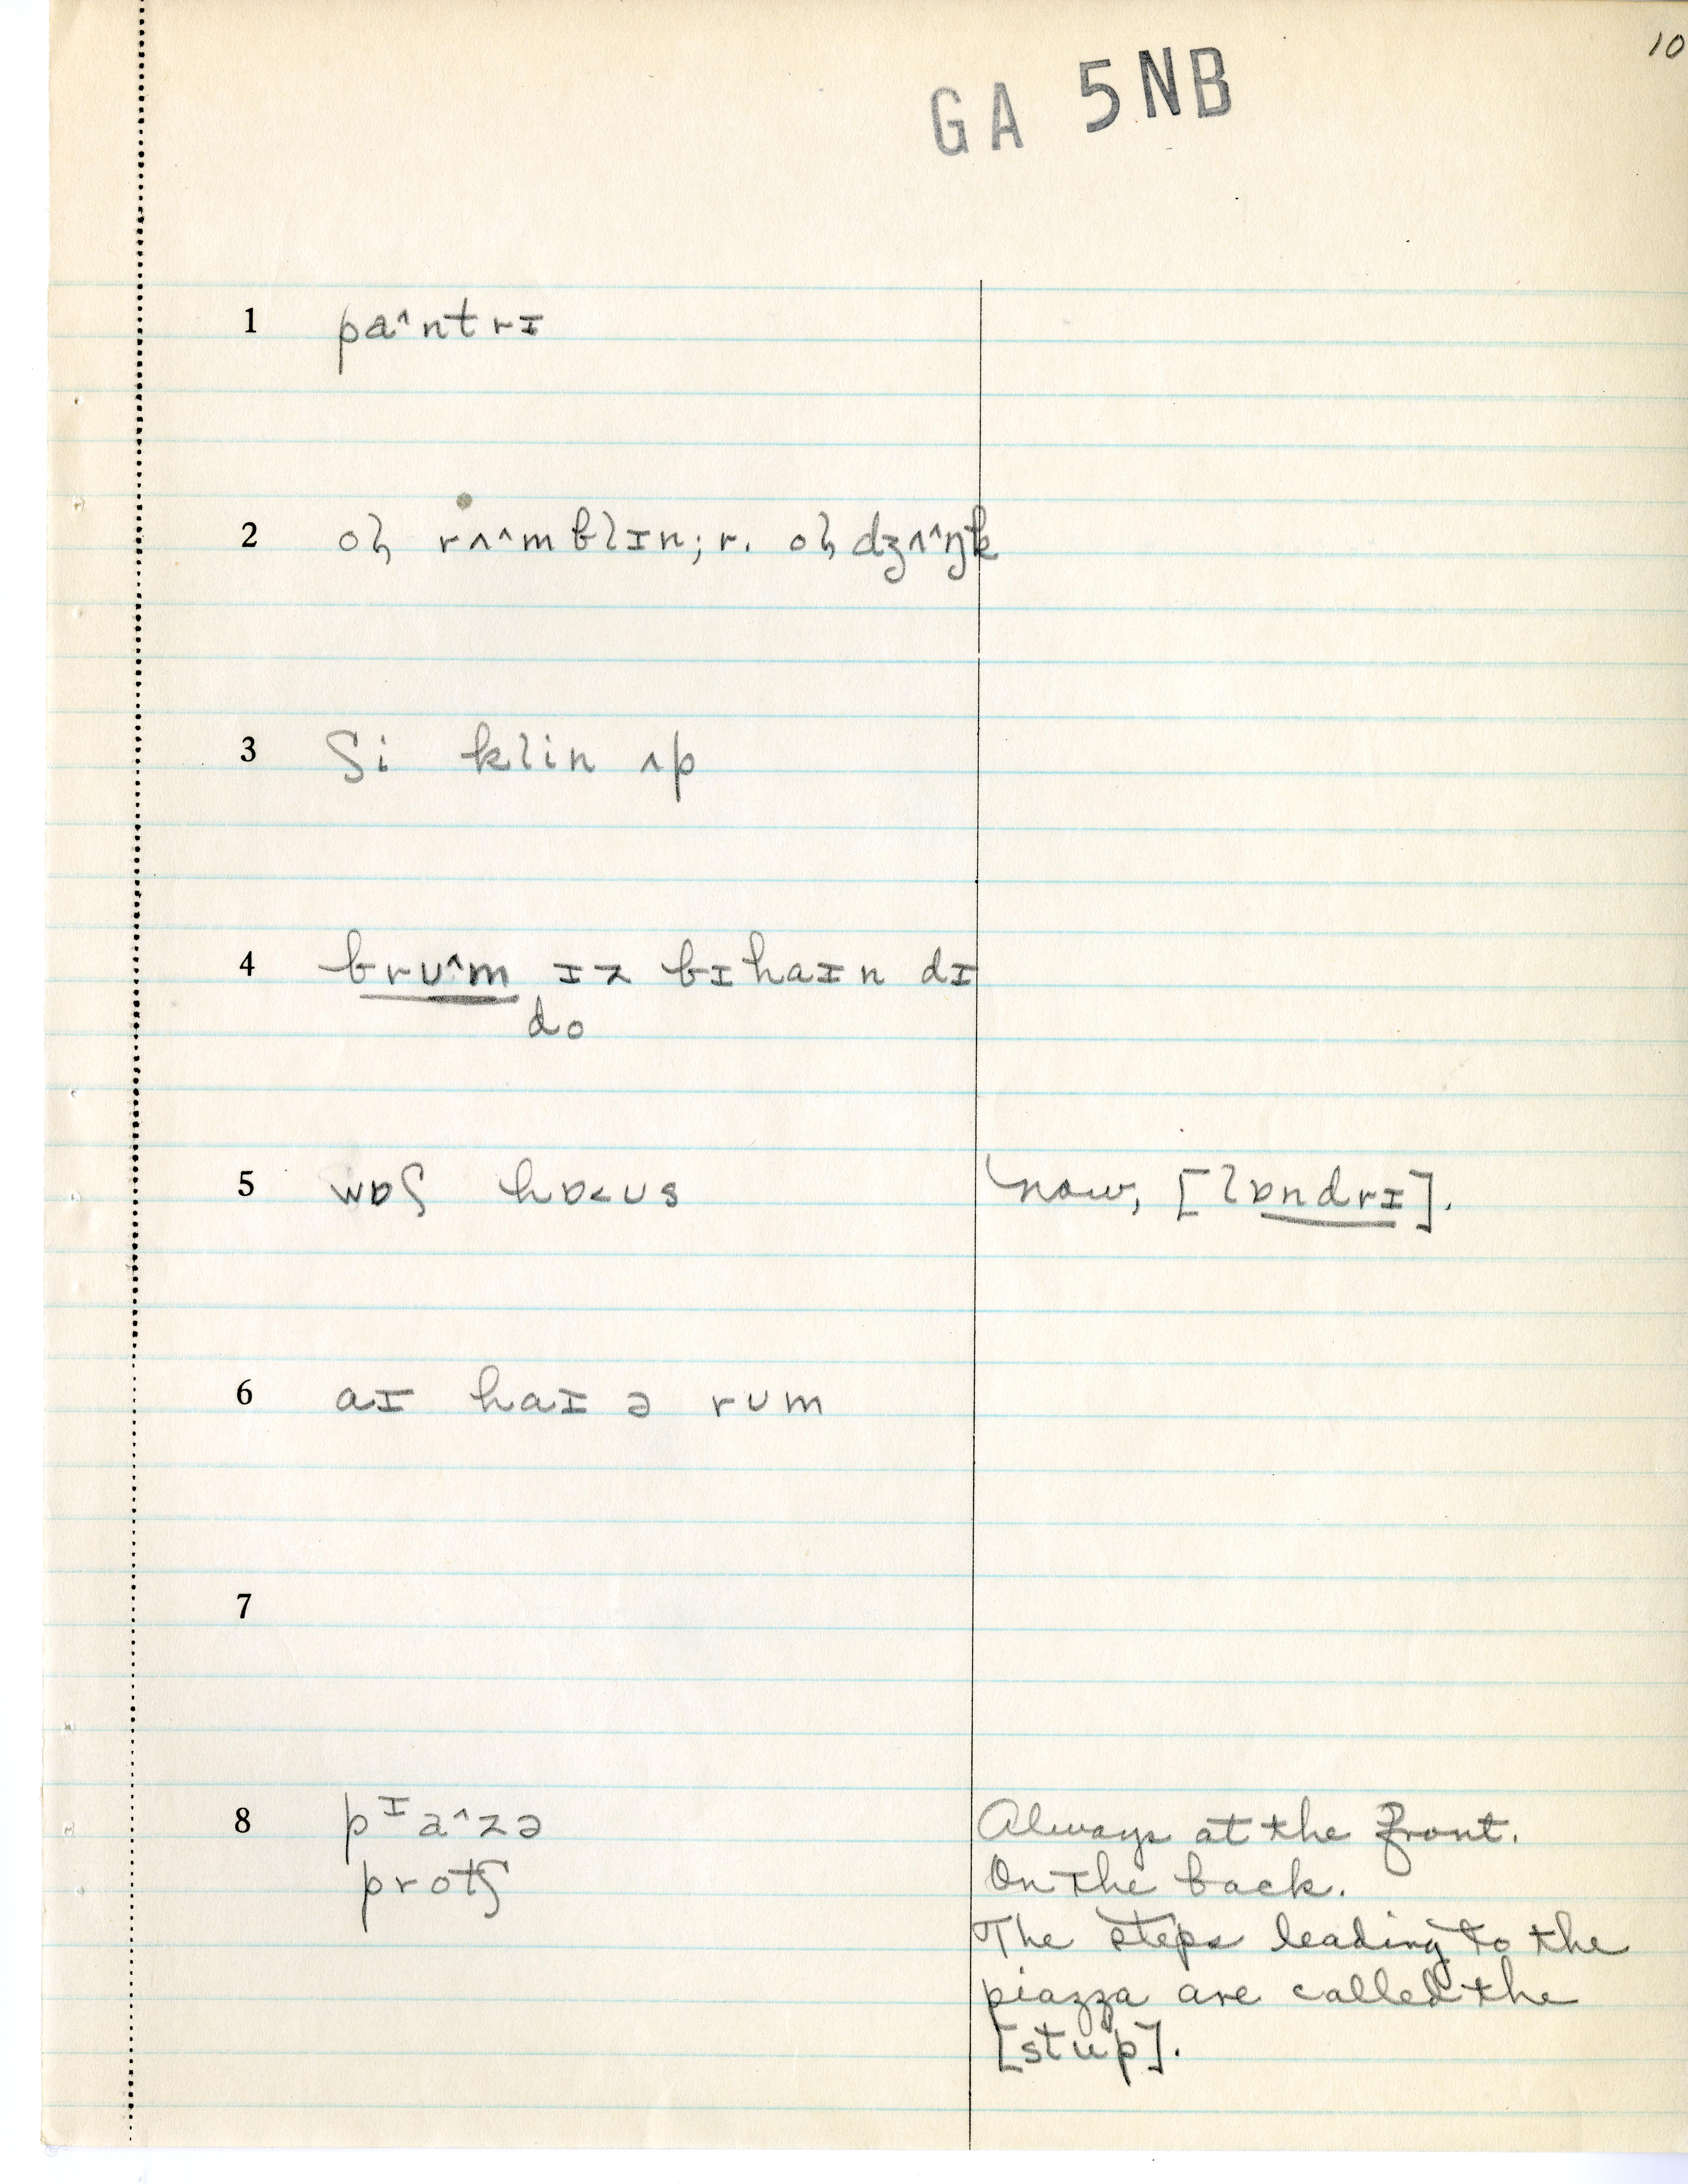 10
GA 5NB
1 pa^ntrɪ
2 oɫ rʌ^mblɪn; r. oɫ dʒʌ^ŋk
3 ʃi klin ʌp
4 brʊ^m ɪz bɪhaɪn dɪ
do
5 wɒʃ hɒ<ʊs now, [lɒndrɪ].
6 aɪ haɪ ə rum
7
8 pᴵa^zə Always at the front.
protʃ On the back.
The steps leading to the
piazza are called the
[stup].